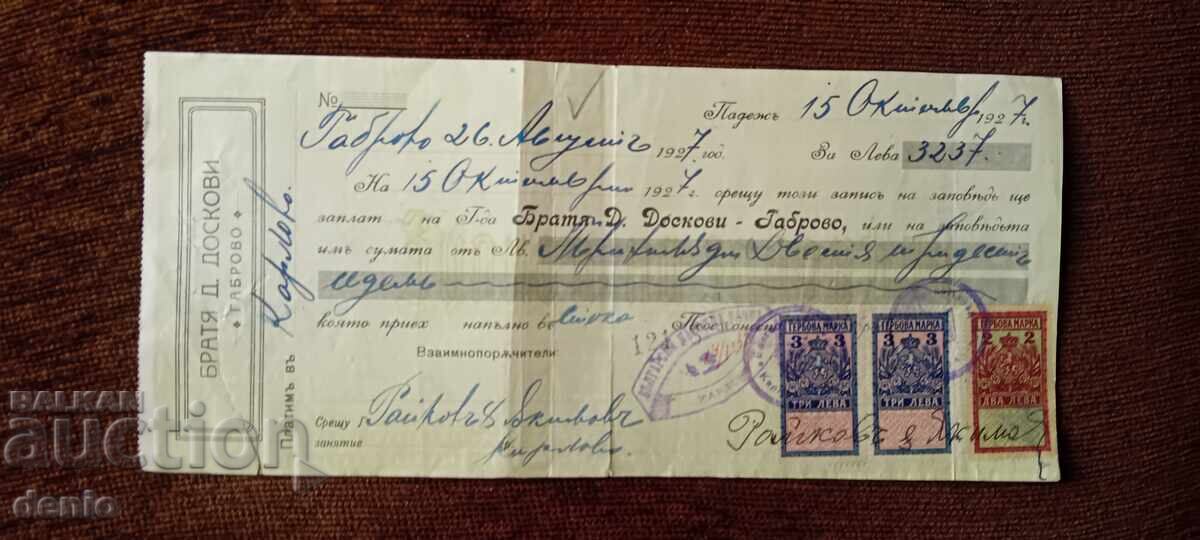 БРАТЯ Д. ДОСКОВИ
✦ ГАБРОВО ✦
Платимъ въ Карлово.
№
Падежъ 15 Октомврий 1927 г.
Габрово 26. Августъ 1927 год. За Лева 3237.
На 15 Октомврий 1927 г. срещу този записъ на заповѣдь ще
заплат на Г-да Братя Д. Доскови - Габрово, или на заповѣдьта
имъ сумата отъ Лв. Три хиляди Двестя и тридесеть
и седемь
която приех напълно въ стока
Взаимнопорѫчители:
Срещу Райковъ & Якимовъ
занятие Карлово
ГЕРБОВА МАРКА
3 3
ТРИ ЛЕВА
ГЕРБОВА МАРКА
3 3
ТРИ ЛЕВА
ГЕРБОВА МАРКА
2 2
ДВА ЛЕВА
Райковъ & Якимовъ
БАЛКАН
Auction
denio